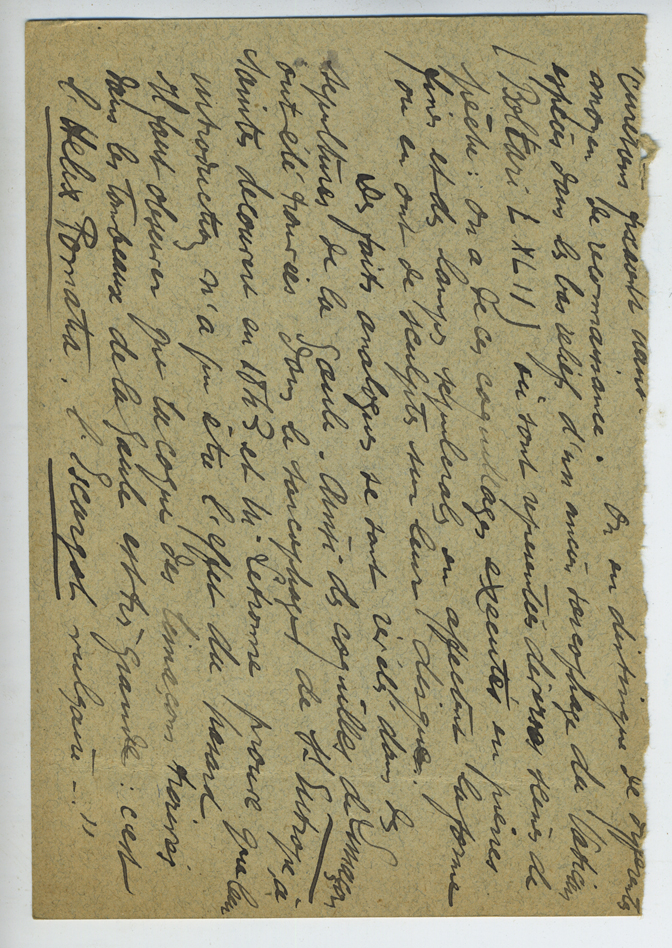 moyen de reconnaissance. On en distingue de différentes
espèces dans les bas reliefs d'un ancien sarcophage du Vatican
(Bottari L XLII) où sont représentées diverses scènes de
pêche : on a de ces coquillages exécutés en pierres
fines et des lampes sépulcrales en affectent la forme
ou en ont de sculptés sur leur disque.
Des faits analogues se sont révélés dans les
sépultures de la Gaule. Ainsi des coquilles de limaçon
ont été trouvées dans le sarcophage de St Eutrope, à
Saintes découvert en 1843 et M. Letronne prouve que leur
introduction n'a pu être l'effet du hasard
Il faut observer que la coque des limaçons trouvés
dans les tombeaux de la Gaule est très grande : c'est
l'Helix Pomatia. l'Escargot vulgaire - . "